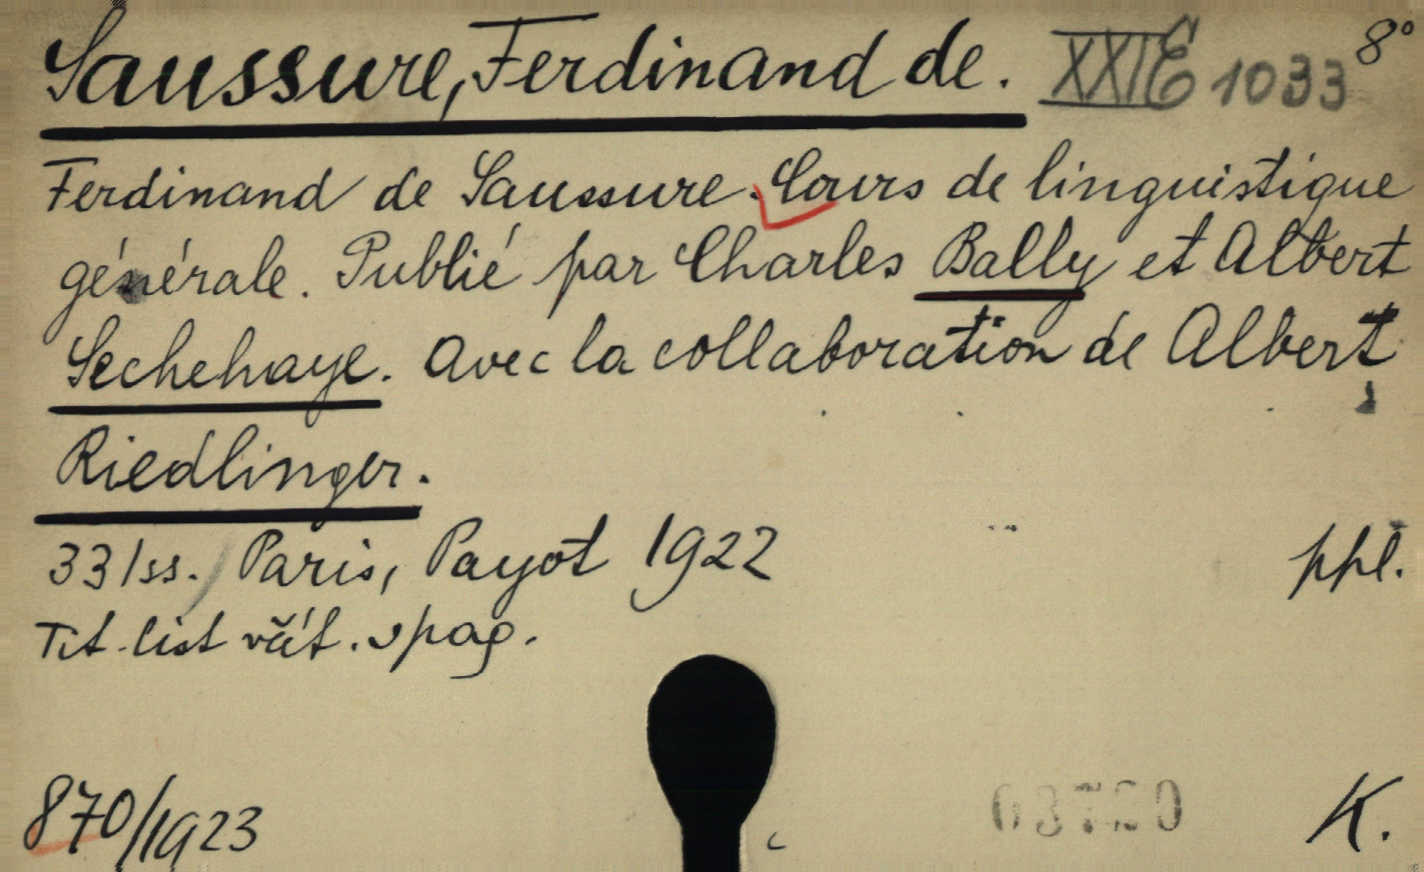 Saussure, Ferdinand de. XXIE 1033 8°
Ferdinand de Saussure. Cours de linguistique
générale. Publié par Charles Bally et Albert
Sechehaye. Avec la collaboration de Albert
Riedlinger.
331ss. Paris, Payot 1922 ppl.
Tit. list včít. v pag.
870/1923 K.